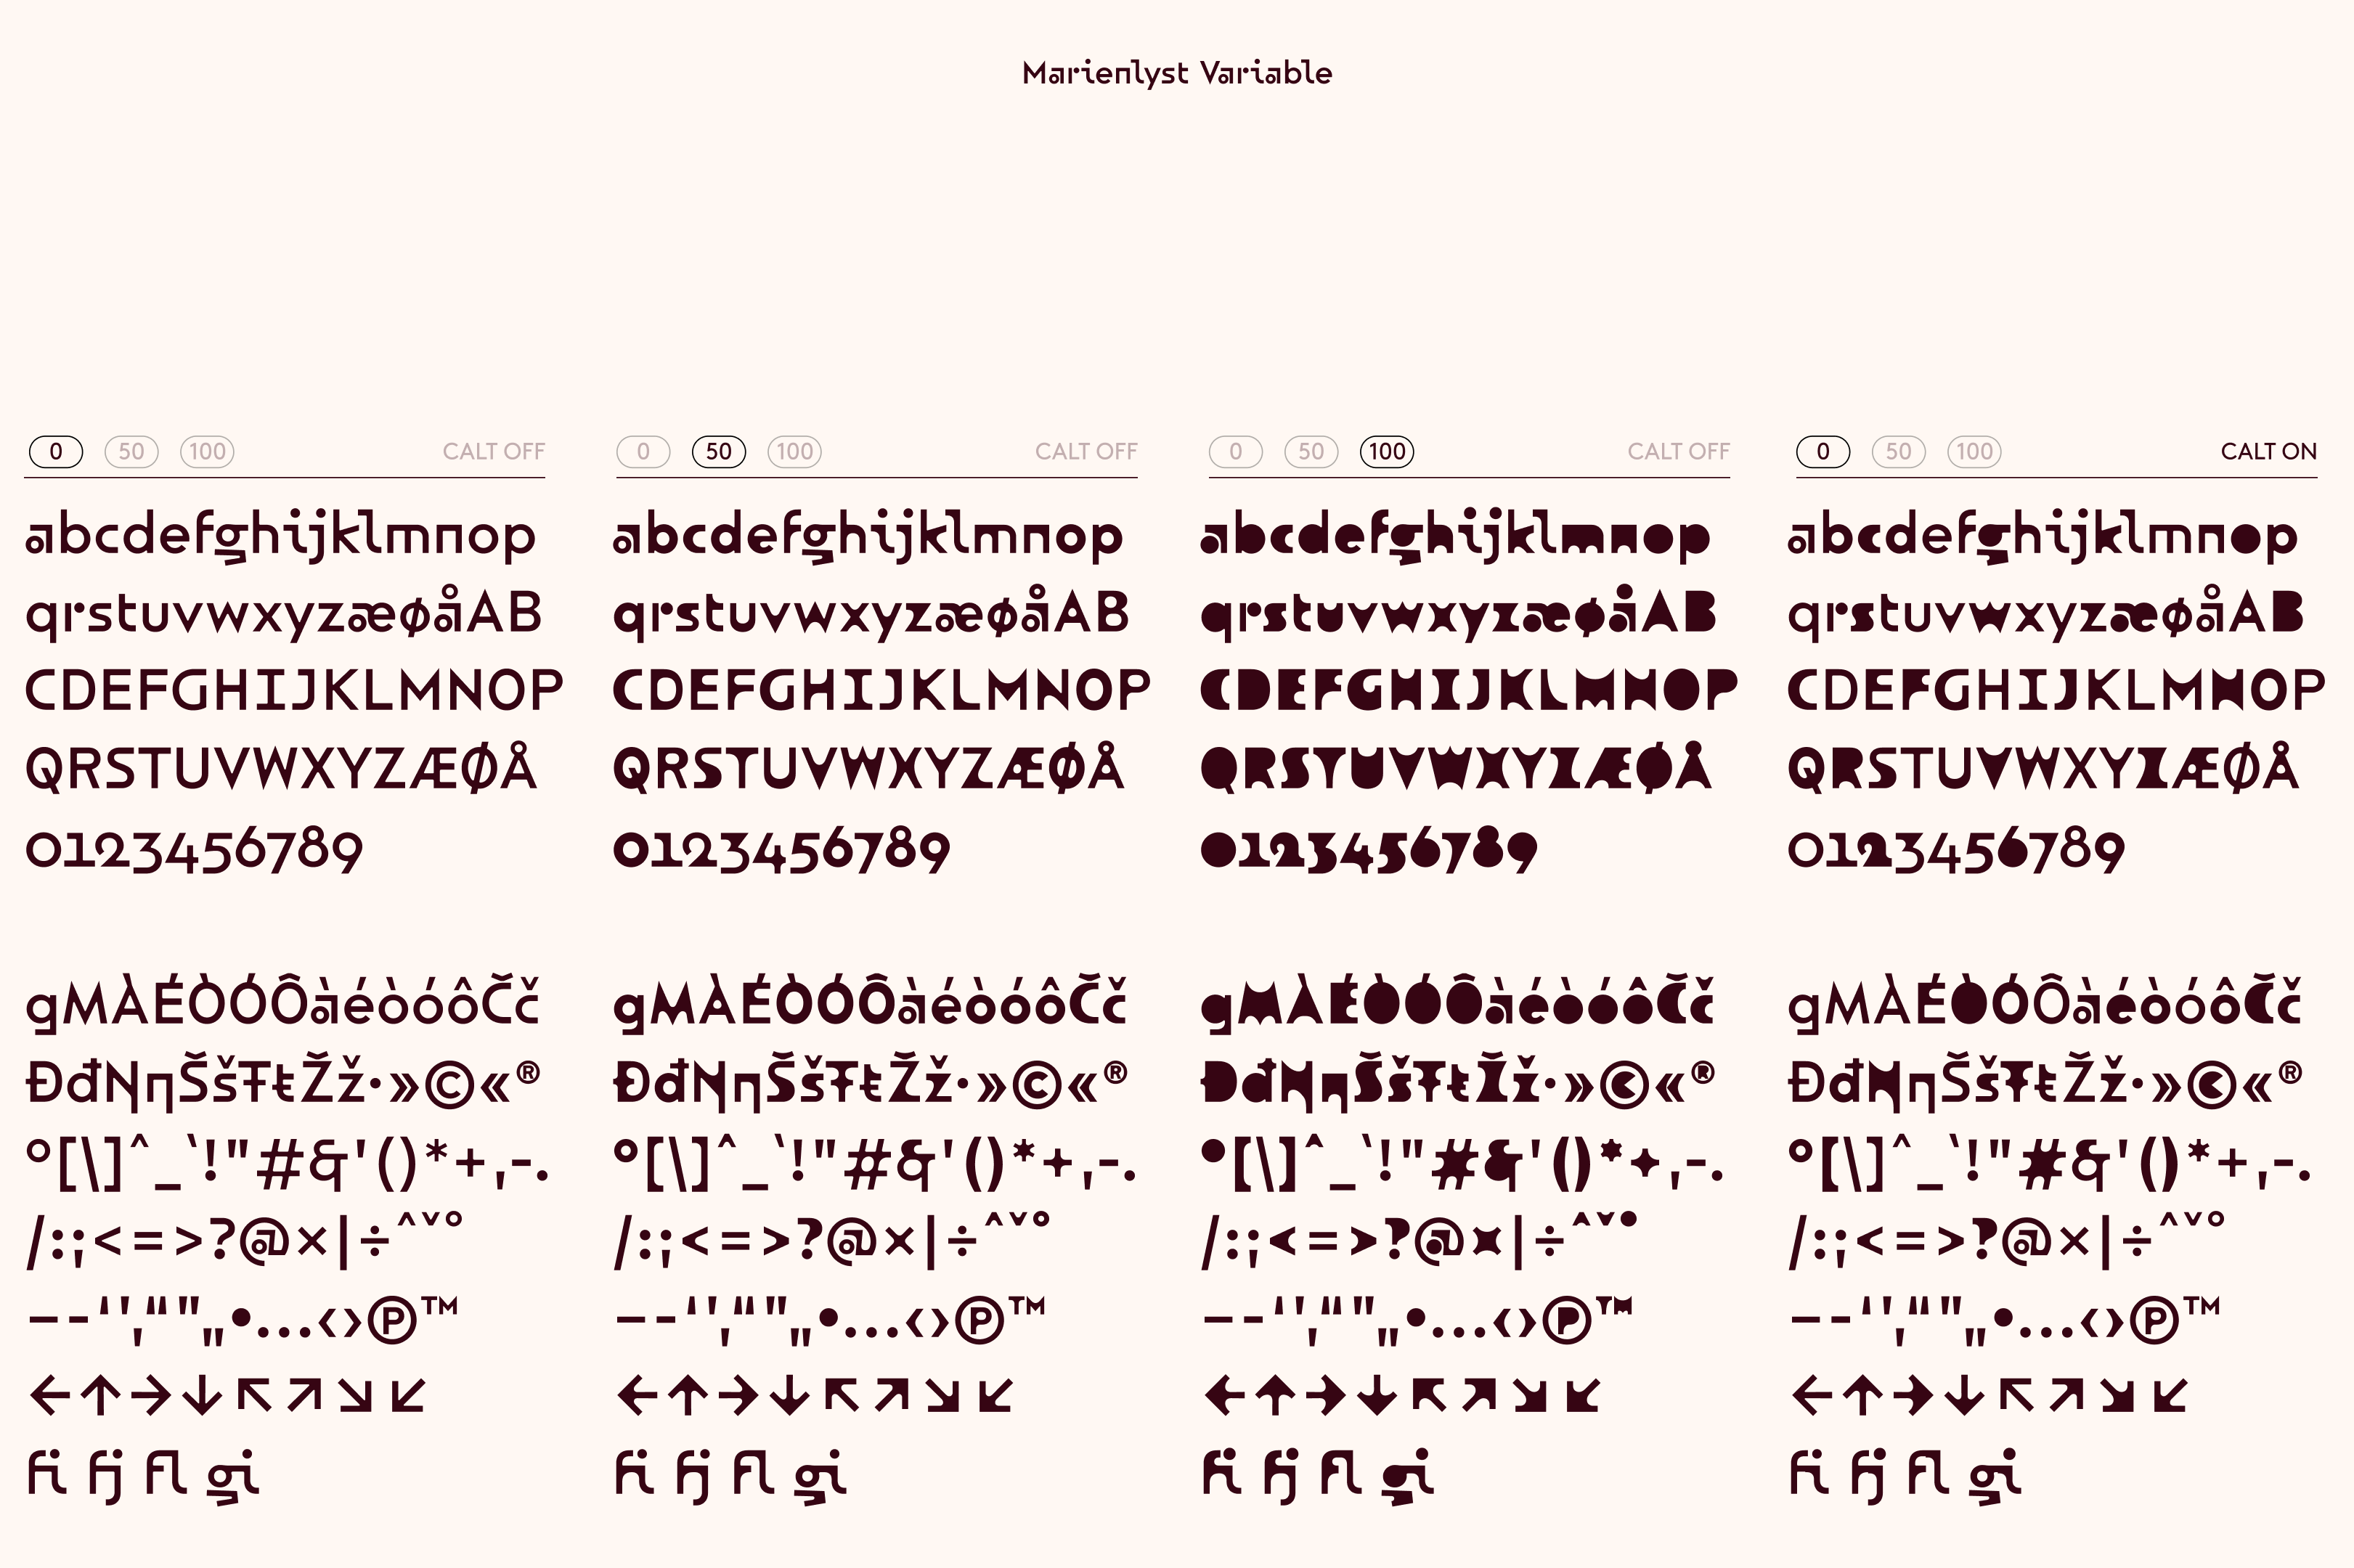 Marienlyst Variable
0 50 100 CALT OFF
abcdefghijklmnop
qrstuvwxyzæøåAB
CDEFGHIJKLMNOP
QRSTUVWXYZÆØÅ
0123456789
gMÀÉÒÓÔàéòóôČč
ĐđŊŋŠšŦŧŽž·»©«®
°[\]^_`!"#&'()*+,-.
/:;<=>?@×|÷ˆˇ˚
–-‘’‚“”„•…‹›℗™
←↑→↓↖↗↘↙
fi fj fl gi
0 50 100 CALT OFF
abcdefghijklmnop
qrstuvwxyzæøåAB
CDEFGHIJKLMNOP
QRSTUVWXYZÆØÅ
0123456789
gMÀÉÒÓÔàéòóôČč
ĐđŊŋŠšŦŧŽž·»©«®
°[\]^_`!"#&'()*+,-.
/:;<=>?@×|÷ˆˇ˚
–-‘’‚“”„•…‹›℗™
←↑→↓↖↗↘↙
fi fj fl gi
0 50 100 CALT OFF
abcdefghijklmnop
qrstuvwxyzæøåAB
CDEFGHIJKLMNOP
QRSTUVWXYZÆØÅ
0123456789
gMÀÉÒÓÔàéòóôČč
ĐđŊŋŠšŦŧŽž·»©«®
°[\]^_`!"#&'()*+,-.
/:;<=>?@×|÷ˆˇ˚
–-‘’‚“”„•…‹›℗™
←↑→↓↖↗↘↙
fi fj fl gi
0 50 100 CALT ON
abcdefghijklmnop
qrstuvwxyzæøåAB
CDEFGHIJKLMNOP
QRSTUVWXYZÆØÅ
0123456789
gMÀÉÒÓÔàéòóôČč
ĐđŊŋŠšŦŧŽž·»©«®
°[\]^_`!"#&'()*+,-.
/:;<=>?@×|÷ˆˇ˚
–-‘’‚“”„•…‹›℗™
←↑→↓↖↗↘↙
fi fj fl gi